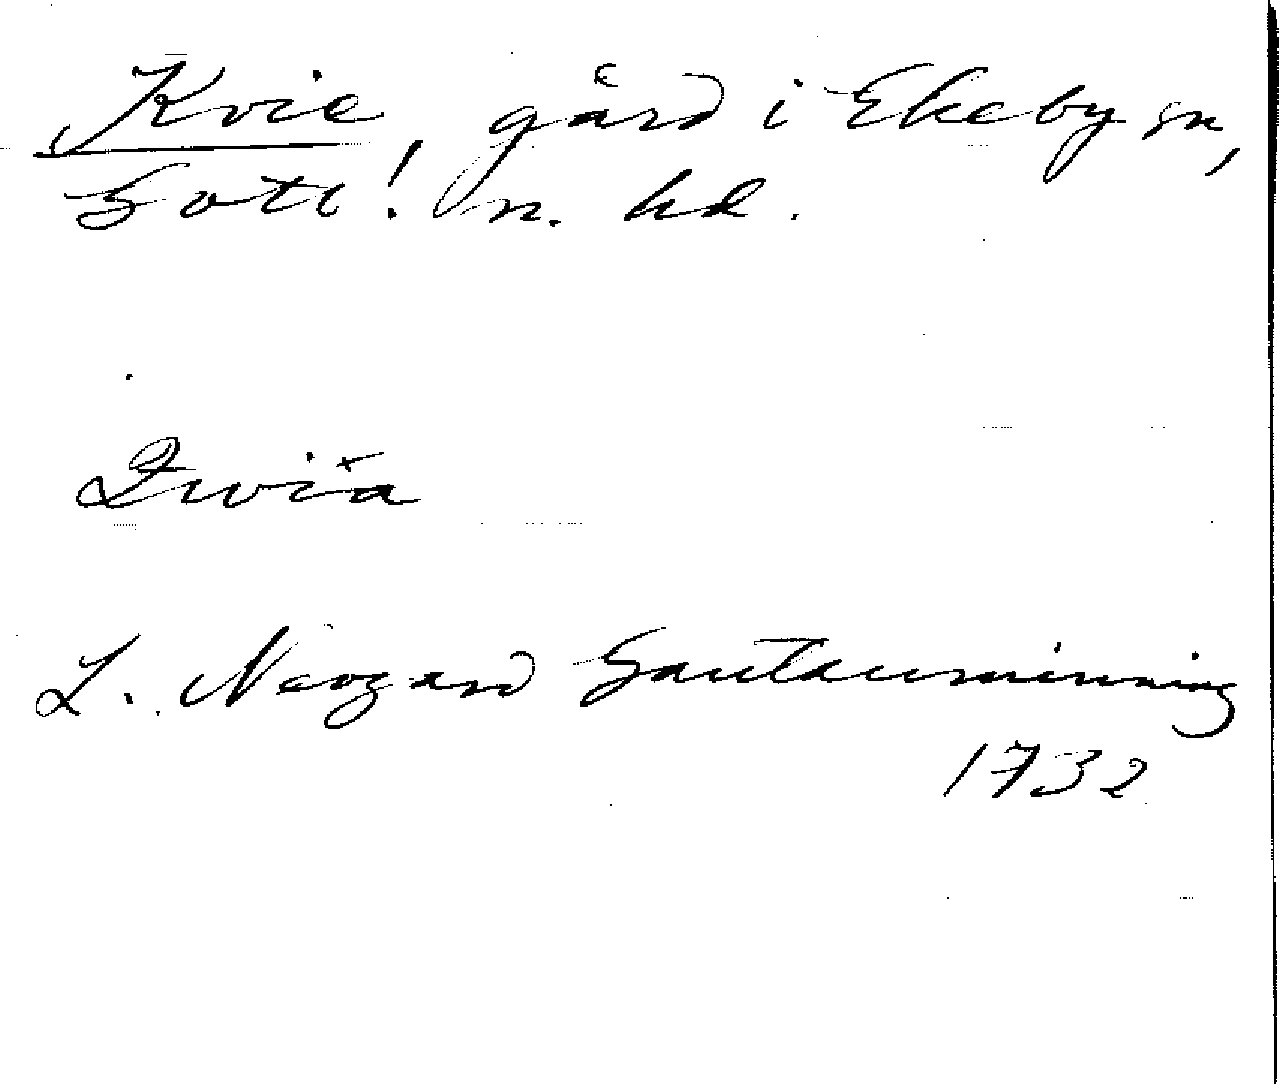 Kvie, gård i Ekeby sn,
Gotl! n. hd.
Qwiä
L. Neogard Gautauminning
1732